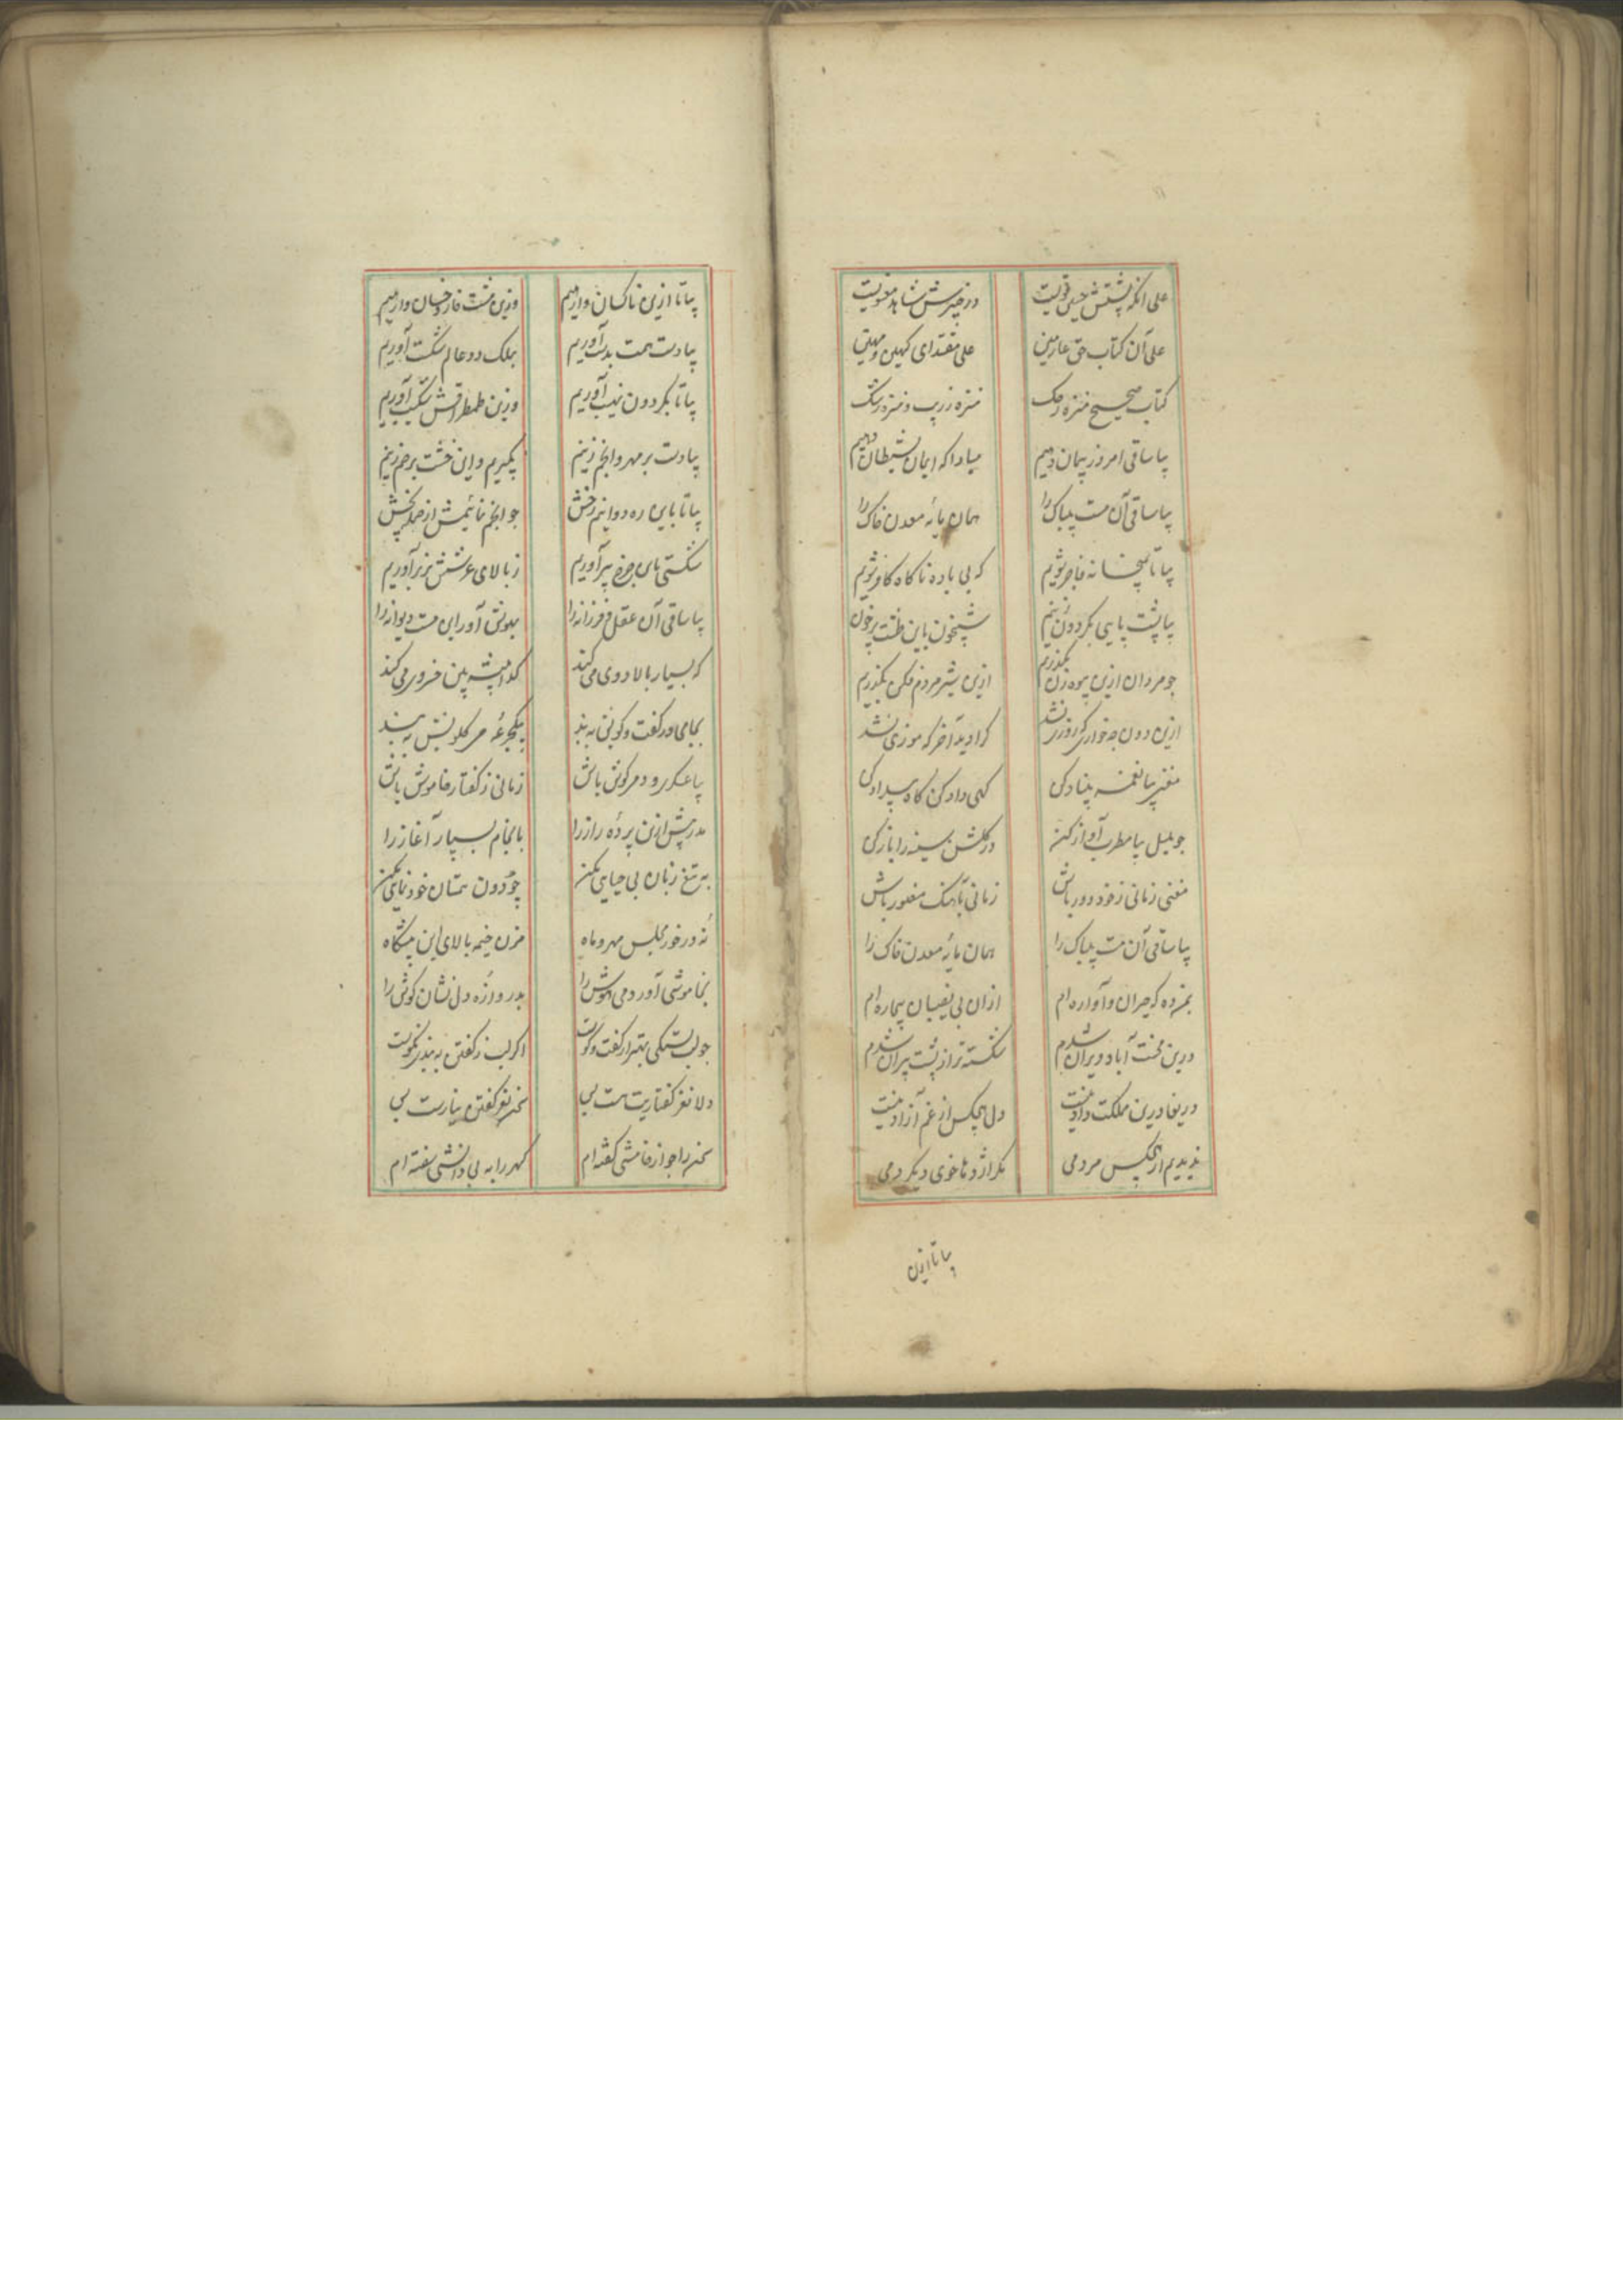 علی آنکه پشتش حیی قویست در خیبرش شاهد معنویست
علی آن کتاب حق عارفین علی مقتدای کهین و مهین
کتاب صحیح منزه ز حک منزه ز ریب و منزه ز شک
بیا ساقی امروز پیمان دهیم مبادا که ایمان بشیطان دهیم
بیا ساقی آن مست بیباک را همان مایهٔ معدن خاک را
بیا تا بمیخانه فاجر شویم که بی باده ناگاه کافر شویم
بیا پشت پایی بگردون زنیم شبیخون باین طشت پرخون
چو مردان ازین بیوه زن بگذریم ازین شیر مردم فکن بگذریم
ازین دون چه خواری که روزی نشد کرا دید آخر که موزی نشد
مغنی بیا نغمه بنیاد کن کهی داد کن گاه بیداد کن
چو بلبل بیا مطرب آواز کن در گلشن سینه را باز کن
مغنی زمانی ز خود دور باش زمانی بآهنگ مغرور باش
بیا ساقی آن مست بیباک را همان مایهٔ معدن خاک را
بمن ده که حیران و آواره ام ازان بی نصیبان بیچاره ام
درین محنت آباد ویران شدم شکسته تر از پشت پیران شدم
دریغا درین مملکت داد نیست دل هیچکس از غم آزاد نیست
ندیدیم از هیچکس مردمی مگر اژدها خوی دیگر دمی
بیا تا ازین
بیا تا ازین ناکسان وارهیم وزین مشت خار و خسان وارهیم
بیا دست همت بدست آوریم بملک دو عالم شکست آوریم
بیا تا بگردون نهیب آوریم وزین طمطراقش شکیب آوریم
بیا دست بر مهر و انجم زنیم بگیریم و این خشت بر خم زنیم
بیا تا باین ره دوانیم رخش چو انجم نمائیمش از صد بخش
شکستی باین چرخ پیر آوریم ز بالای عرشش بزیر آوریم
بیا ساقی آن عقل فرزانه را بهوش آور این مست دیوانه را
که بسیار بالا دوی می کند کدا پیشه بین خسروی می کند
بجامی در گفت و گویش ببند بیکجرعه مر گلویش ببند
بیا عسکر و دمی گوش باش زمانی ز گفتار خاموش باش
مدر بیش ازین پردهٔ راز را بانجام بسپار آغاز را
به تیغ زبان بی حیایی مکن چو دون همتان خودنمایی مکن
نهٔ در خور مجلس مهر و ماه مزن خیمه بالای این پیشگاه
بخاموشی آور دمی هوش را بدروازهٔ دل نشان گوش را
چو لب بستگی بهتر از گفت و گوست اگر لب ز گفتن ببندی نکوست
دلا نغز گفتاریت هست بس سخن نغز گفتن بیارست بس
سخن را چو از خامشی گفته ام گهر را به بی دانشی سفته ام